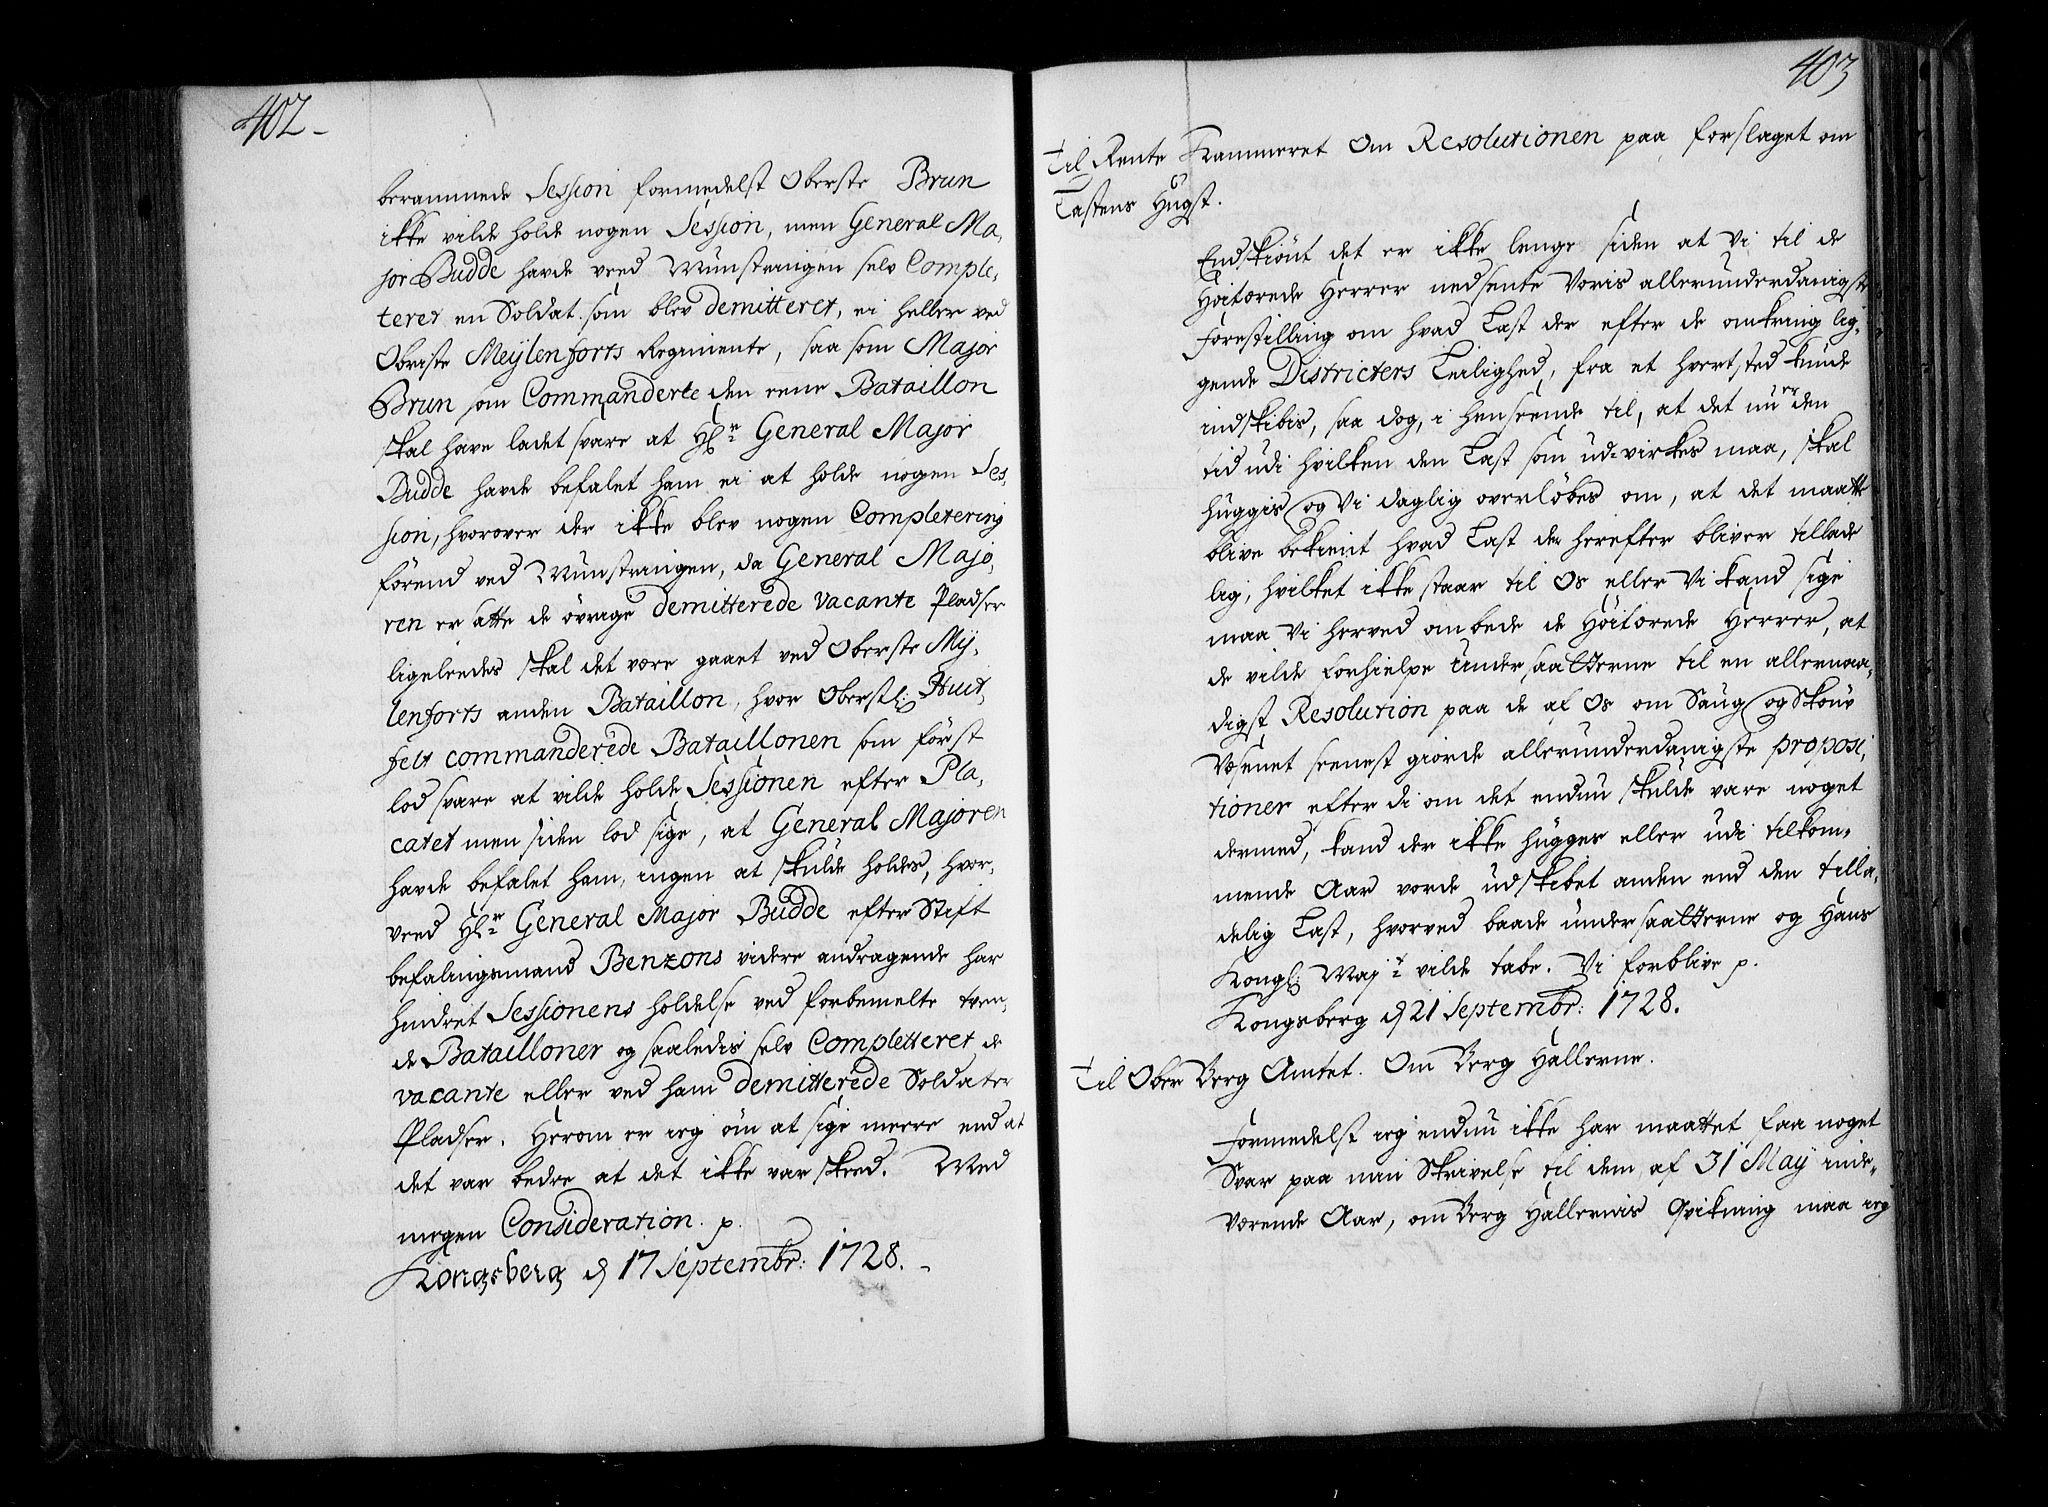 402
berammede Session formedelst Oberste Brun
ikke vilde holde nogen Session, men General Ma,
jor Budde havde veed Munstringen selv Comple,
teret en Soldat som blev demitteret, ei heller ved
Obriste Meÿlenforts Regimente, saa som Major
Brun som Commanderte den eene Bataillon
skal have ladet svare at Hr General Major
Budde havde befalet ham ei at holde nogen Ses,
sion, hvorover der ikke blev nogen Completering
førend ved Munstringen, da General Majo,
ren ersatte de øvrige demitterede vacante Pladser
ligeleedes skal det være gaaet ved Oberste Mÿ,
lenforts anden Bataillon, hvor Oberstl: Huit,
felt commanderede Bataillonen som først
lod svare at vilde holde Sessionen efter Pla,
catet men siden lod sige, at General Majoren
havde befalet ham, ingen at skulde holdes, hvor,
veed Hr General Major Budde efter Stift
befalingsmand Benzons videre andragende har
hindret Sessionens holdelse ved forbemelte tven,
de Batailloner og saaledis selv Completteret de
vacante eller ved ham demitterede Soldater
Pladser. Herom er ieg øm at sige meere end at
det var bedre at det ikke var skeed. Med
megen Consideration. p.
Kongsberg d 17 Septembr: 1728.
403
Til Rente Kammeret Om Resolutionen paa forslaget om
Lastens Hugst.
Endskiönt det er ikke lenge siden at Vi til de
Höitærede Herrer nedsente Voris allerunderdanigste
Forestilling om hvad Last der efter de omkring lig,
gende Districters Leilighed, fra et hvert sted kunde
indskibis, saa dog, i henseende til, at det nu er den
tid udi hvilken den Last som udvirkes maa, skal
huggis og Vi daglig overløbes om, at det maatte
blive bekient hvad Last der herefter bliver tillade
lig, hvilket ikke staar til Os eller Vi kand sige
maa Vi herved ombede de Höitærede Herrer, at
de vilde forhielpe Undersaatterne til en allernaa,
digst Resolution paa de af Os om Saug og Skouv
Væsenet seenest giorde allerunderdanigste proposi,
tioner efterdi om det endnu skulde vare noget
dermed, kand der ikke hugges eller udi tilkom,
mende Aar vorde udskibet anden end den tilla,
delig Last, hvorved baade undersaatterne og Hans
Kongl: Majt vilde tabe. Vi forblive p.
Kongsberg d 21 Septembr: 1728.
Til Ober Berg Amtet. Om Berg Hallerne.
Formedelst ieg endnu ikke har maattet faa noget
Svar paa min Skrivelse til dem, af 31 Maÿ inde,
værende Aar, om Berg Hallernis Qvikning maa ieg